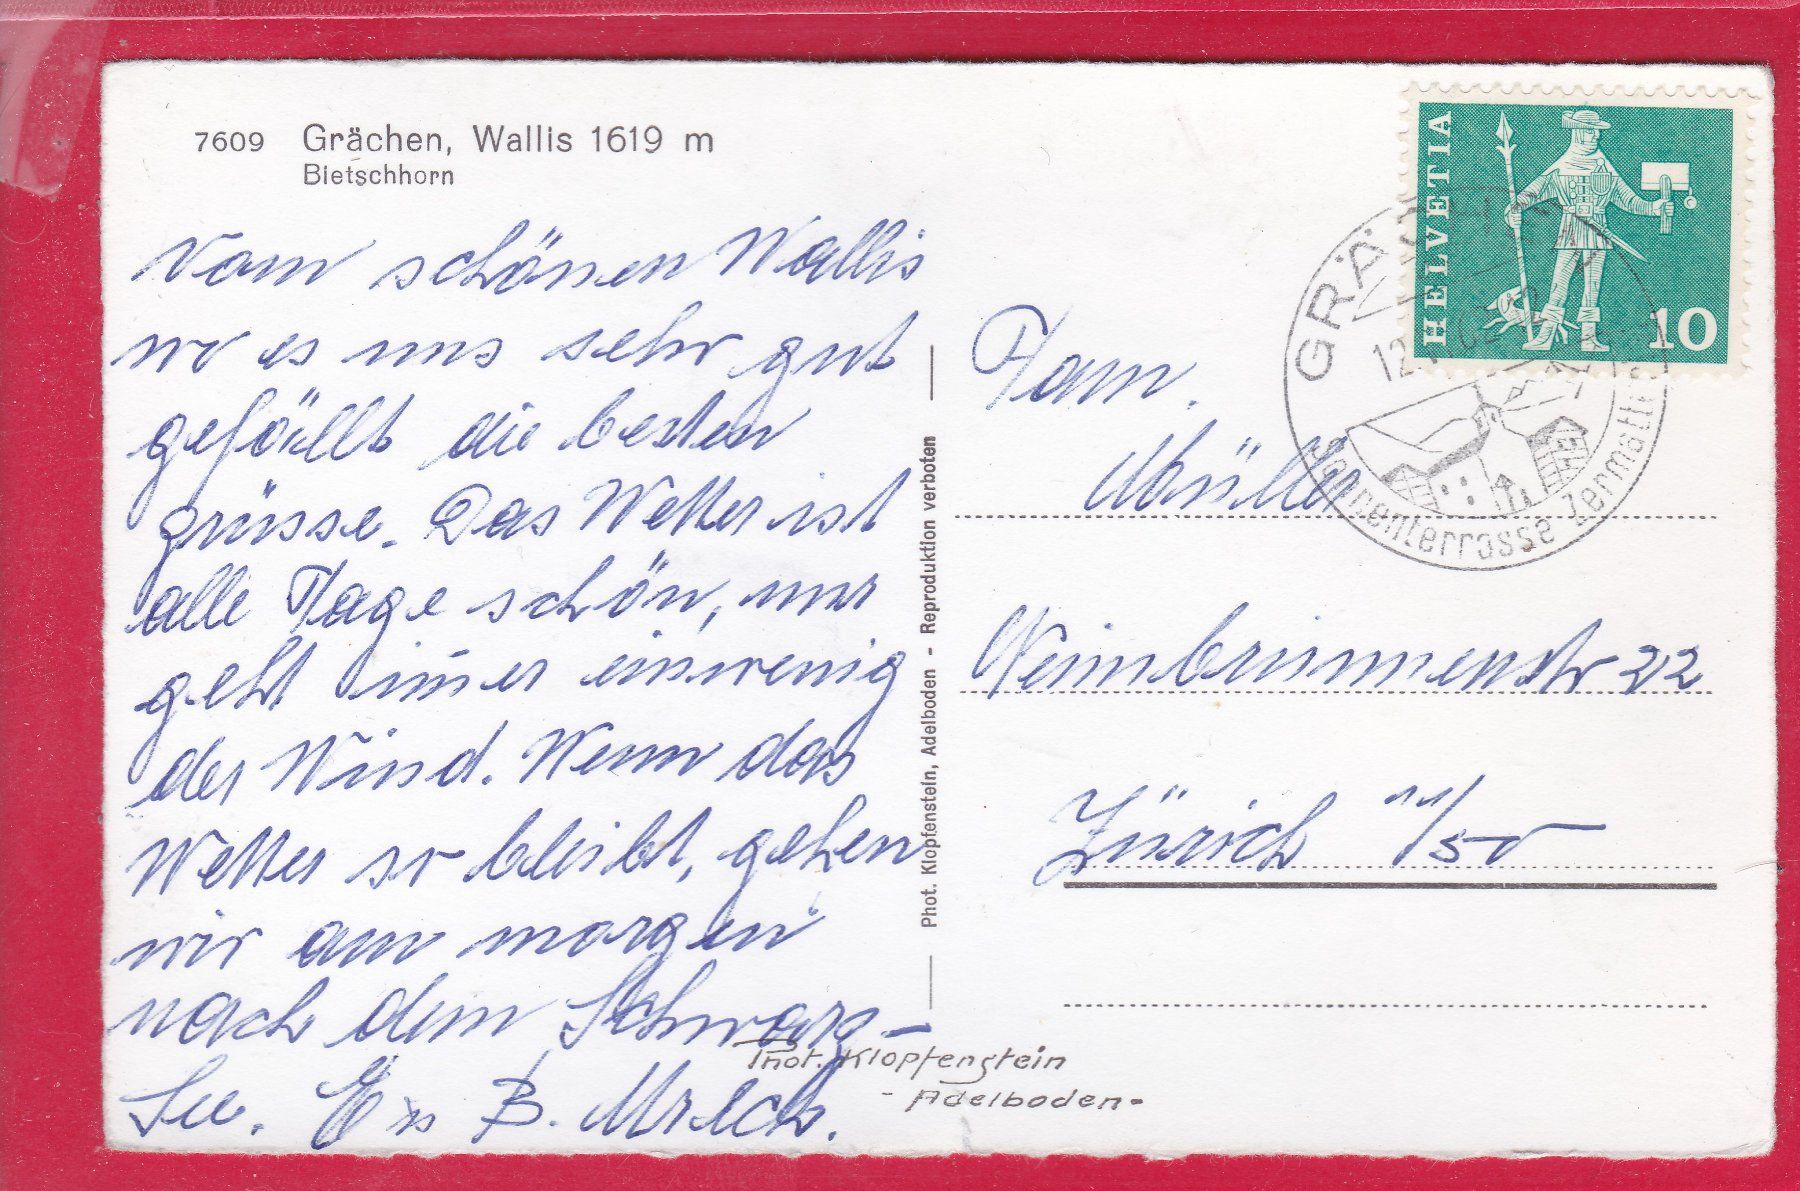 7609 Grächen, Wallis 1619 m
Bietschhorn
Vom schönen Wallis
wo es uns sehr gut
gefällt die besten
grüsse. Das Wetter ist
alle Tage schön, nur
geht im̄er einwenig
der Wind. Wenn das
Wetter so bleibt, gehen
wir am morgen
nach dem Schwarz-
See.
Phot. Klopfenstein, Adelboden - Reproduktion verboten
Phot. Klopfenstein
- Adelboden -
HELVETIA
10
GRÄCHEN
Sonnenterrasse Zermattertal
Fam.
Müller
Weinbrunnenstr 22
Zürich 11/50